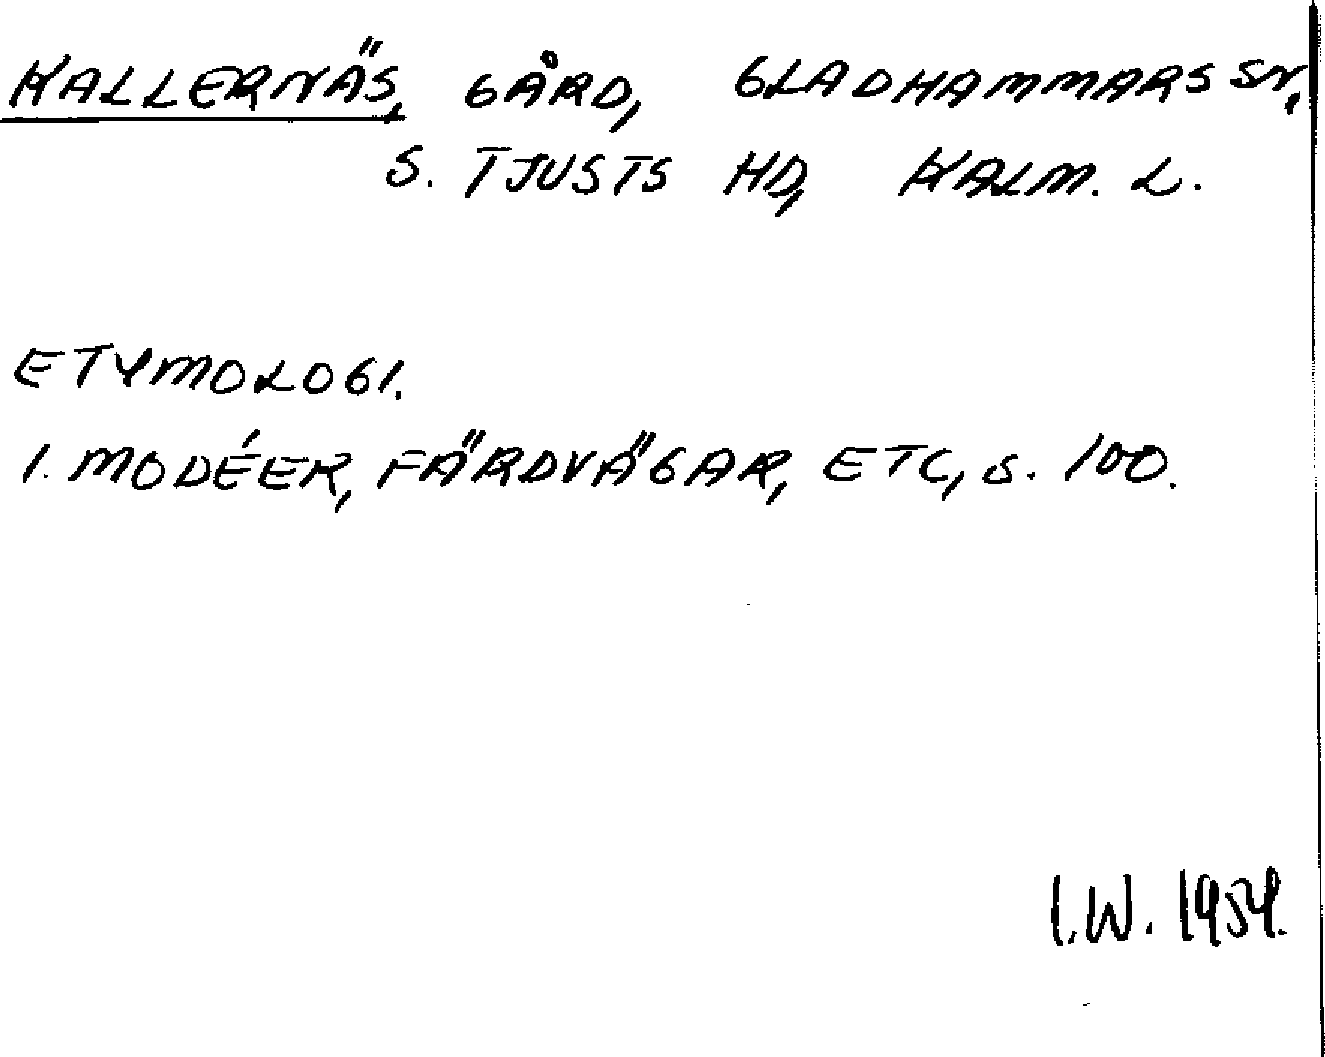 KALLERNÄS, GÅRD, GLADHAMMARS SN,
S. TJUSTS HD, KALM. L.
ETYMOLOGI.
I. MODÉER, FÄRDVÄGAR, ETC, s. 100.
I.W. 1954.